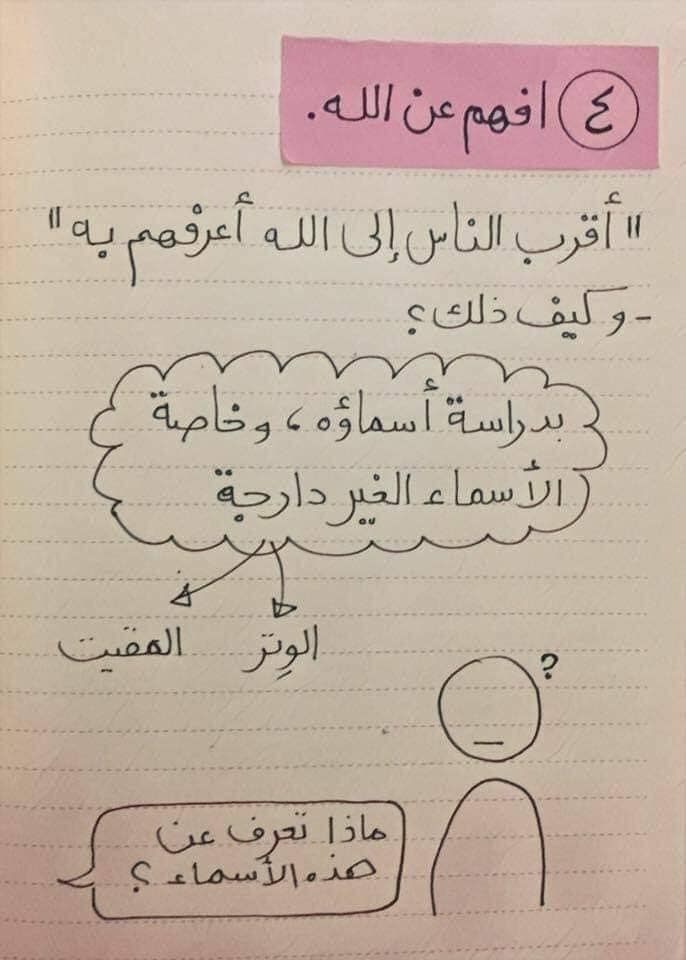 ٤ افهم عن الله.
"أقرب الناس إلى الله أعرفهم به"
- وكيف ذلك؟
بدراسة أسماؤه، وخاصة
الأسماء الغير دارجة
الوِتر المقيت
?
ماذا تعرف عن
هذه الأسماء؟